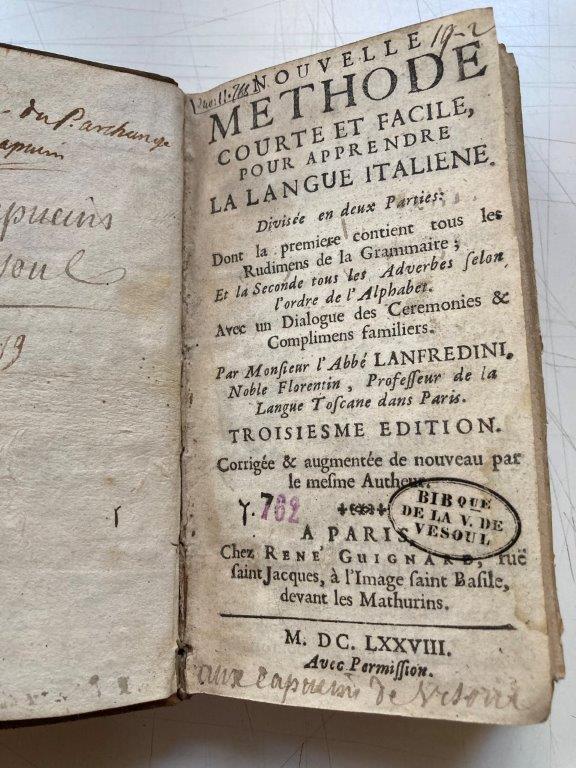 du P. archange
capucin
19-2
NOUVELLE
METHODE
COURTE ET FACILE,
POUR APPRENDRE
LA LANGUE ITALIENE.
Divisée en deux Parties:
Dont la premiere contient tous les
Rudimens de la Grammaire;
Et la Seconde tous les Adverbes selon
l'ordre de l'Alphabet.
Avec un Dialogue des Ceremonies &
Complimens familiers.
Par Monsieur l'Abbé LANFREDINI,
Noble Florentin, Professeur de la
Langue Toscane dans Paris.
TROISIESME EDITION.
Corrigée & augmentée de nouveau par
le mesme Autheur.
762
BIBQUE
DE LA V. DE
VESOUL
A PARIS
Chez RENÉ GUIGNARD, ruë
saint Jacques, à l'Image saint Basile,
devant les Mathurins.
M. DC. LXXVIII.
Avec Permission.
aux capucins de Vesoul